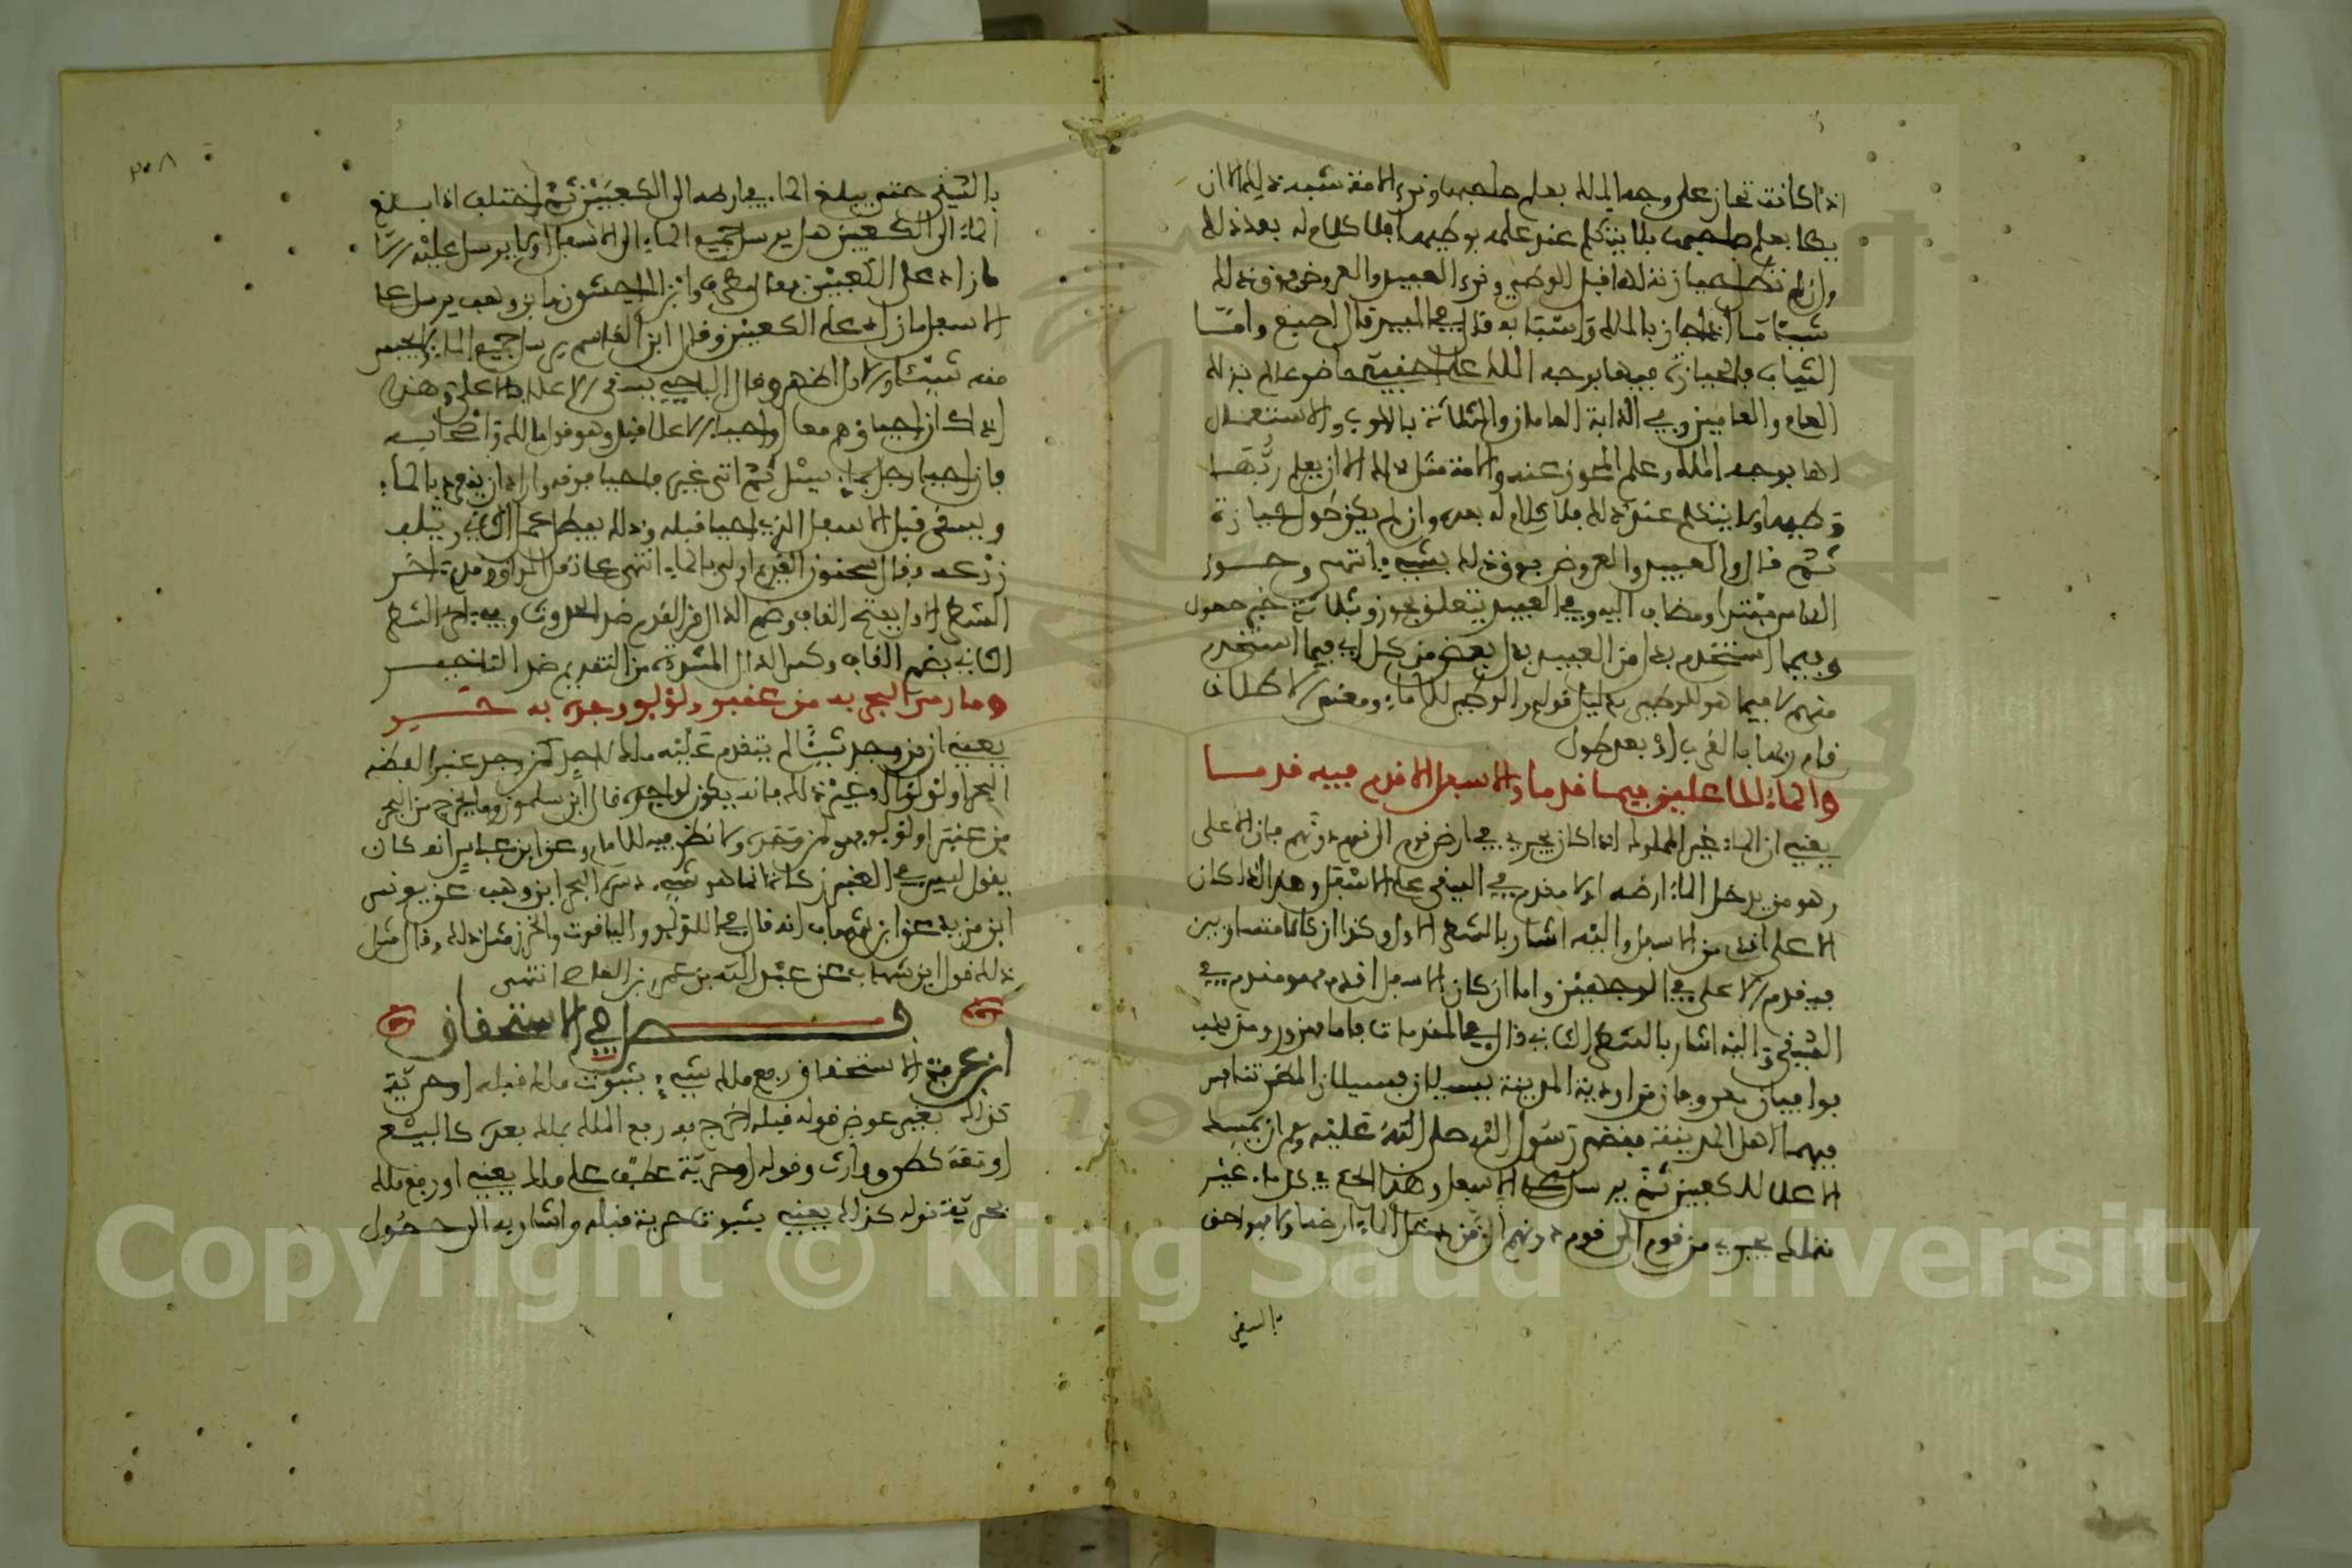 اذا كانت تحاز على وجه الملك بعلم صاحبها ونرى الامة تشبه ذلك الا ان
يطا بعلم صاحبها فلا يتكلم عند علمه بوطيها فلا كلام له بعد ذلك
وان لم تطل حيازته لها قبل الوطي ونرى العبيد والعروض فوق ذلك
شيئا ما اذا حاز بالملك
الثياب فالحيازة فيها بوجه الملك
العام والعامين وفي الدابة العامان والثلاثة بالركوب والاستعمال
لها بوجه الملك وعلم المحوز عنه والامة مثل ذلك الا ان يعلم ربها
وطيها ولا يتكلم عند ذلك فلا كلام له بعده وان لم يكن طول حيازة
ثم قال والعبيد والعروض فوق ذلك بشيء انتهى وحوز
الناس مبتدا ومضاف اليه وفي العبيد يتعلق بحوز وثلاثة خبر حصول
وفيما استخدم بدل من العبيد بدل بعض من كل اي فيما استخدم
منهم لا فيما هو للوطي بدليل قوله والوطي للاماء ومعنى الاطلاق
قام ربها بالقرب او بعد طول
والماء للاعلين فيما قدما والاسفل الاقدم فيه قدما
يعني ان الماء غير المملوك اذا كان يجري في ارض قوم الى قوم دونهم فان الاعلى
وهو من يدخل الماء ارضه اولا مقدم في السقي على الاسفل وهذا اذا كان
الاعلى اقدم من الاسفل واليه اشار بالشطر الاول وكذا ان كانا متساويين
فيقدم الاعلى في الوجهين واما ان كان الاسفل اقدم فهو مقدم في
السقي واليه اشار بالشطر الثاني قال في المقدمات فاما مهزور ومذينب
فواديان معروفان من اودية المدينة يسيلان بسيلان المطر تنافس
فيهما اهل المدينة فقضى رسول الله صلى الله عليه وسلم ان يمسك
الاعلا للكعبين ثم يرسل الى الاسفل وهذا الحكم في كل ماء غير
متملك يجري من قوم الى قوم دونهم ان من دخل الماء ارضه اولا فهو احق
بالسقي
بالسقي حتى يبلغ الماء في ارضه الى الكعبين ثم اختلف اذا بلغ
الماء الى الكعبين هل يرسل جميع الماء الى الاسفل او لا يرسل عليه الا
ما زاد على الكعبين فقال مطرف وابن الماجشون وابن وهب يرسل على
الاسفل ما زاد على الكعبين وقال ابن القاسم يرسل جميع الماء ولا يحبس
منه شيئا والاول اظهر وقال الباجي يسقي الاعلى فالاعلى وهذا
اذا كان احياؤهم معا او احيا الاعلا قبل وهو قول مالك واصحابه
فان احيا رجل بماء سيل ثم اتى غيره فاحيا فوقه واراد ان ينفرد بالماء
ويسقي قبل الاسفل الذي احيا قبله وذلك يبطل عمل الثاني ويتلف
زرعه وقال سحنون القديم اولى بالماء انتهى
الشطر الاول بفتح القاف وضم الدال من القدم ضد الحدوث وفي اخر الشطر
الثاني بضم القاف وكسر الدال المشددة من التقديم ضد التاخير
وما رمى البحر به من عنبر ولؤلؤ واجده به حري
يعني ان من وجد شيئا لم يتقدم عليه ملك لاحد كمن وجد عنبرا لفظه
البحر او لؤلؤا او غير ذلك فانه يكون لواجده قال ابن سلمون وما يخرج من البحر
من عنبر او لؤلؤ فهو لمن وجده ولا نظر فيه للامام وعن ابن عباس انه كان
يقول ليس في العنبر زكاة انما هو شيء دسره البحر ابن وهب عن يونس
ابن يزيد عن ابن شهاب انه قال في اللؤلؤ والياقوت والخرز مثل ذلك وقال مثل
ذلك قول ابن شهاب عن عبد الله بن عمرو بن العاص انتهى
فصل في الاستحقاق
ابن عرفة الاستحقاق رفع ملك شيء بثبوت ملك قبله او حرية
كذلك بغير عوض قوله قبله اخرج به رفع الملك بملك بعده كالبيع
او بعده كطرو وارث وقوله او حرية عطف على ملك يعني او رفع ملك
بحرية قوله كذلك يعني بثبوت حرية قبله واشار به الى دخول